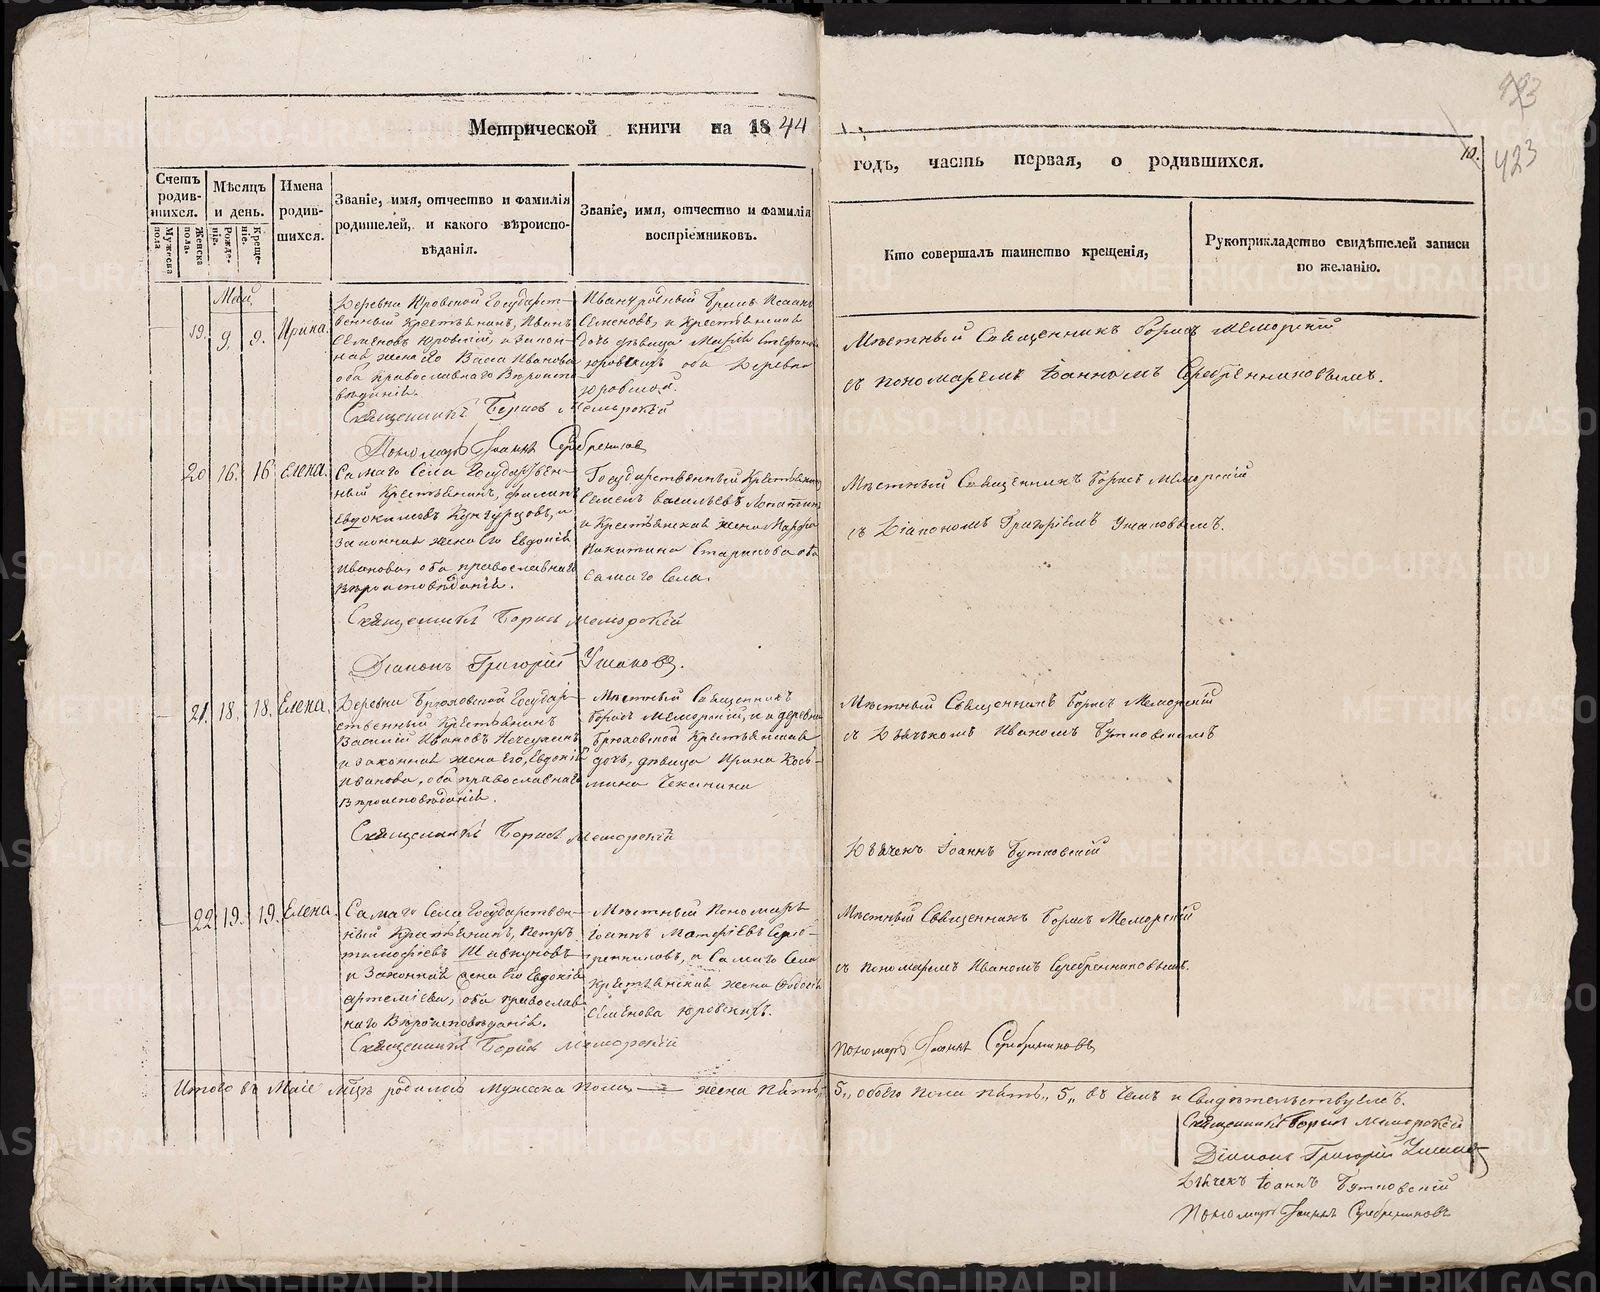 Метрической книги на 1844
годъ, часть первая, о родившихся.
10.
423
Счетъ родив-шихся.
Мужеска пола.
Женска пола.
Мѣсяцъ и день.
Рожде-ніе.
Креще-ніе.
Имена родив-шихся.
Званіе, имя, отчество и фамилія
родителей, и какого вѣроиспо-
вѣданія.
Званіе, имя, отчество и фамилія
воспріемниковъ.
Кто совершалъ таинство крещенія,
Рукоприкладство свидѣтелей записи
по желанію.
Май
19. 9. 9. Ирина.
Деревни Юровской Государст-
венный Крестьянинъ, Иванъ
Семеновъ Юровский, и закон-
ная жена его Васса Иванова
оба православнаго Вѣроиспо-
вѣданія.
Иванъ родный братъ Исаакъ
Семеновъ, и Крестьянская
дочь дѣвица Марія Стефанова
Юровскихъ оба Деревни
Юровской.
Мѣстный Священникъ Борисъ Меморскій
съ пономаремъ Іоанномъ Серебренниковымъ.
Священникъ Борисъ Меморскій
Пономарь Іоаннъ Серебрениковъ
20 16. 16 Елена.
Самаго Села Государствен-
ный Крестьянинъ, Филипъ
Евдокимовъ Кунгурцовъ, и
Законная жена его Евдокія
Иванова, оба православнаго
Вѣроисповѣданія.
Государственный Крестьянинъ
Семенъ Васильевъ Лопатинъ
и Крестьянская жена Марфа
Никитина Старикова оба
самаго Села.
Мѣстный Священникъ Борисъ Меморскій
съ Діакономъ Григоріемъ Ушаковымъ.
Священникъ Борисъ Меморскій
Діаконъ Григорій Ушаковъ.
21. 18. 18. Елена.
Деревни Брюховской Государ-
ственный Крестьянинъ
Василій Ивановъ Нечеухинъ
и законная жена его, Евдокія
Иванова, оба православнаго
Вѣроисповѣданія.
Мѣстный Священникъ
Борисъ Меморскій, и и деревни
Брюховской Крестьянская
дочь, дѣвица Ирина Кось-
мина Чекинина
Мѣстный Священникъ Борисъ Меморскій
съ Дьячкомъ Иваномъ Бутковскимъ
Священникъ Борисъ Меморскій
Дьячекъ Іоаннъ Бутковскій
22 19. 19. Елена.
Самаго Села Государствен-
ный Крестьянинъ, Петръ
Тимофѣевъ Шавкуновъ
и Законная жена его Евдокія
Артеміева, оба православ-
наго Вѣроисповѣданія.
Мѣстный Пономарь
Іоаннъ Матфіевъ Сереб-
ренниковъ, и Самаго Села
Крестьянская жена Ѳедосія
Семенова Юровскихъ.
Мѣстный Священникъ Борисъ Меморскій
съ пономаремъ Иваномъ Серебренниковымъ.
Священникъ Борисъ Меморскій
Пономарь Іоаннъ Серебрениковъ
Итого въ Маіе Мцѣ родилось Мужеска пола — женска пять„ 5„ обоего пола пять„ 5„ въ чемъ и Свидѣтельствуемъ.
Священникъ Борисъ Меморскій
Діаконъ Григорій Ушаковъ
Дьячекъ Іоаннъ Бутковскій
Пономарь Іоаннъ Серебрениковъ
METRIKI.GASO-URAL.RU